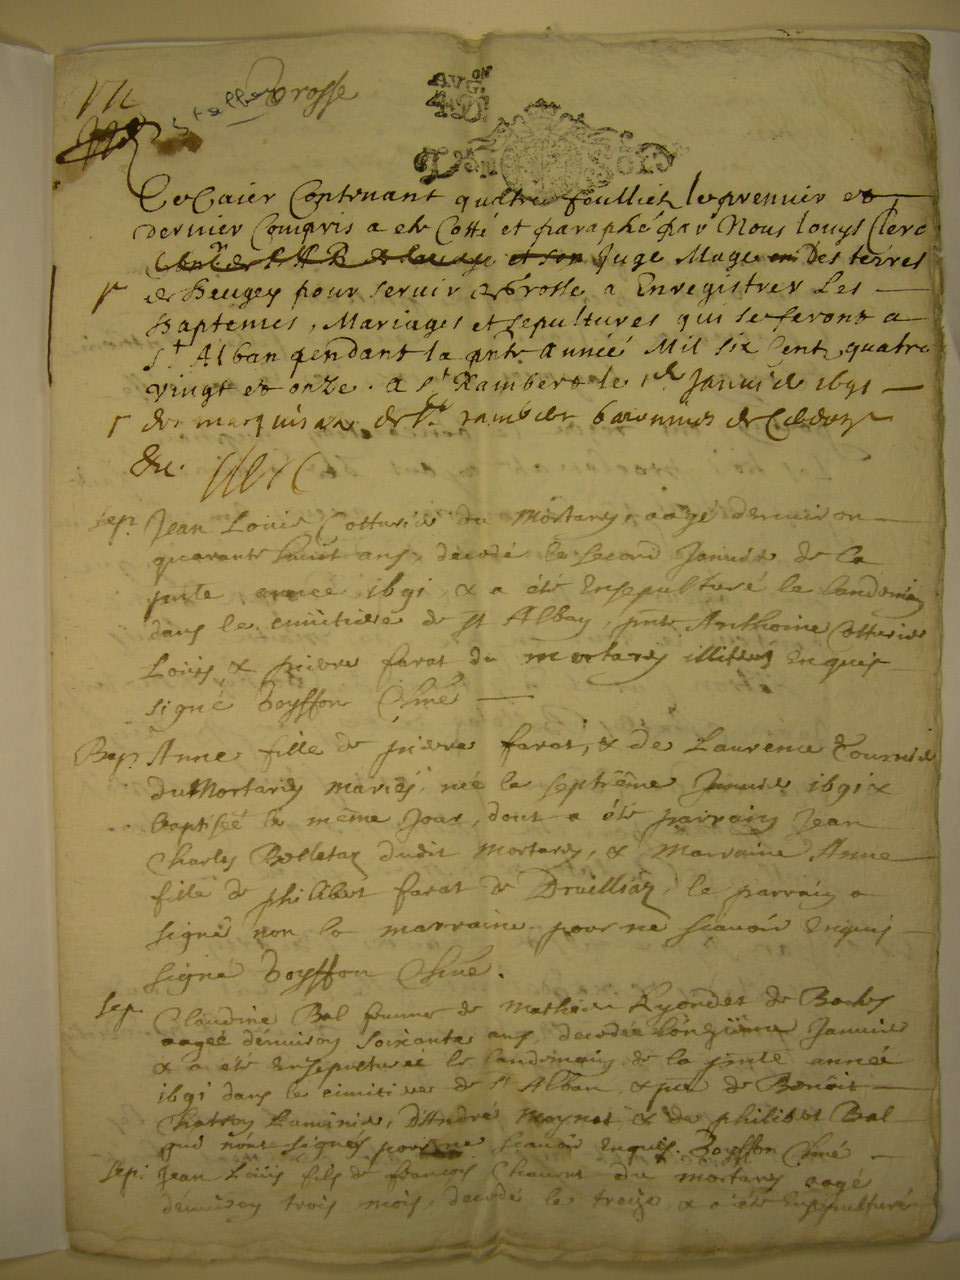 grosse
Ce Caier Contenant quattre foulliet le premier et
dernier Compris a ete Cotté et paraphé par Nous louys Clerc
et son Juge Mage Des terres
de Beugey pour servir de Grosse a Enregistrer Les
Baptemes, Mariages et sepultures qui se feront a
St Alban pendant la pnte Année Mil six Cent quatre
vingt et onze. a St Rambert le Janvier 1691
du marquisat de St rambert
&c.
Sep. Jean Louis Cotturier du Mortarey, aagé denviron
quarante huict ans, decedé le second Janvier de la
pnte année 1691 & a été Ensepulturé le landemain
dans le cimitiere de St Alban, pnts Anthoine Cotturier
Louis, & pierre farat du mortarey illitérés Enquis
signé boysson Curé
Bap. Anne fille de pierre farat, & de Laurence Tournier
du Mortarey mariés, née le septiême Janvier 1691 &
baptisée le même Jour, dont a été parrain Jean
Charles Bolletaz dudit Mortarey, & Marraine Anne
fille de philibert farat de Druilliaz, le parrain a
signé non la marraine pour ne sçavoir Enquis
signé boysson Curé.
Sep. Claudine Bal femme de Mathieu de
aagée denviron soixante ans, decedée Lonzieme Janvier
& a été Ensepulturée le landemain de la pnte année
1691 dans le cimitiere de St Alban, & pnt de Benoit
D'André Moynet & de philibert Bal
qui nont signés pour ne scavoir Enquis. Boysson Curé
Sep. Jean Louis fils de françois du mortarey aagé
denviron trois mois, decedé le treize & a été Ensepulturé